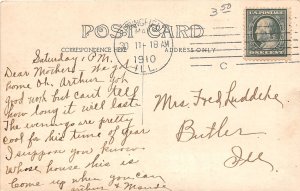 3.50
POST CARD
CORRESPONDENCE HERE
ADDRESS ONLY
11-18 AM
1910
ILL.
U.S. POSTAGE
ONE CENT
C
Saturday 1 P.M.
Dear Mother:
home Oh. Arthur
good work but can't tell
how long it will last.
The evenings are pretty
cool for this time of year
I suppose you know
whose house this is
Come up when you can
Arthur & Maude
Mrs. Fred Luddeke
Butler
Ill